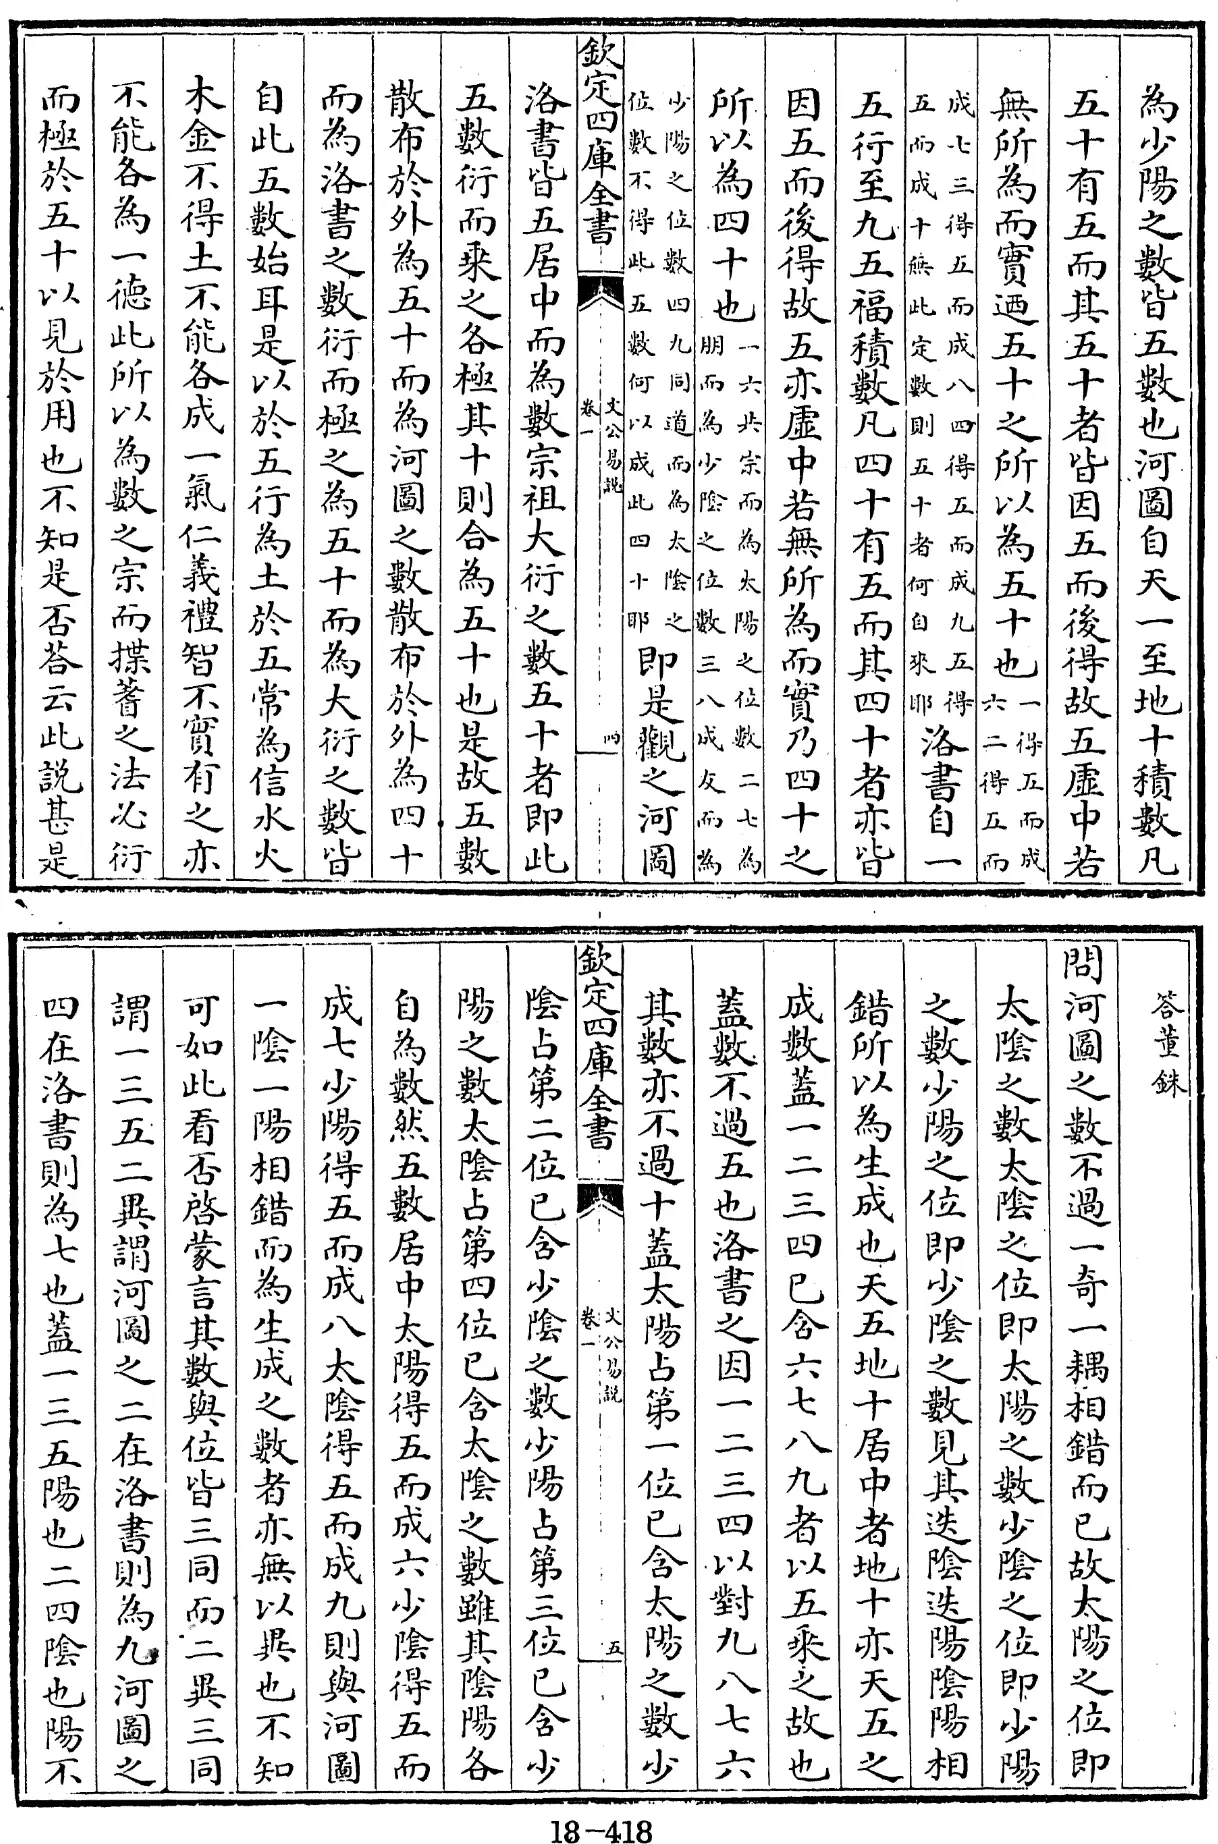 為少陽之數皆五數也河圖自天一至地十積數凡
五十有五而其五十者皆因五而後得故五虛中若
無所為而實迺五十之所以為五十也一得五而成六二得五而
成七三得五而成八四得五而成九五得五而成十無此定數則五十者何自來耶洛書自一
五行至九五福積數凡四十有五而其四十者亦皆
因五而後得故五亦虛中若無所為而實乃四十之
所以為四十也一六共宗而為太陽之位數二七為朋而為少陰之位數三八成友而為
少陽之位數四九同道而為太陰之位數不得此五數何以成此四十耶即是觀之河圖
欽定四庫全書
文公易說
卷一
四
洛書皆五居中而為數宗祖大衍之數五十者即此
五數衍而乘之各極其十則合為五十也是故五數
散布於外為五十而為河圖之數散布於外為四十
而為洛書之數衍而極之為五十而為大衍之數皆
自此五數始耳是以於五行為土於五常為信水火
木金不得土不能各成一氣仁義禮智不實有之亦
不能各為一德此所以為數之宗而揲蓍之法必衍
而極於五十以見於用也不知是否答云此說甚是
答董銖
問河圖之數不過一奇一耦相錯而已故太陽之位即
太陰之數太陰之位即太陽之數少陰之位即少陽
之數少陽之位即少陰之數見其迭陰迭陽陰陽相
錯所以為生成也天五地十居中者地十亦天五之
成數蓋一二三四已含六七八九者以五乘之故也
蓋數不過五也洛書之因一二三四以對九八七六
其數亦不過十蓋太陽占第一位已含太陽之數少
欽定四庫全書
文公易說
卷一
五
陰占第二位已含少陰之數少陽占第三位已含少
陽之數太陰占第四位已含太陰之數雖其陰陽各
自為數然五數居中太陽得五而成六少陰得五而
成七少陽得五而成八太陰得五而成九則與河圖
一陰一陽相錯而為生成之數者亦無以異也不知
可如此看否啓蒙言其數與位皆三同而二異三同
謂一三五二異謂河圖之二在洛書則為九河圖之
四在洛書則為七也蓋一三五陽也二四陰也陽不
18-418